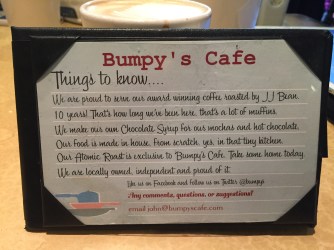 Bumpy's Cafe
Things to know....
We are proud to serve our award winning coffee roasted by JJ Bean.
10 years! That's how long we've been here, that's a lot of muffins.
We make our own Chocolate Syrup for our mochas and hot chocolate.
Our food is made in house, from scratch, yes, in that tiny kitchen.
Our Atomic Roast is exclusive to Bumpy's Cafe. Take some home today.
We are locally owned, independent and proud of it.
Like us on Facebook and Follow us on Twitter @bumpys
Any comments, questions, or suggestions?
email john@bumpyscafe.com